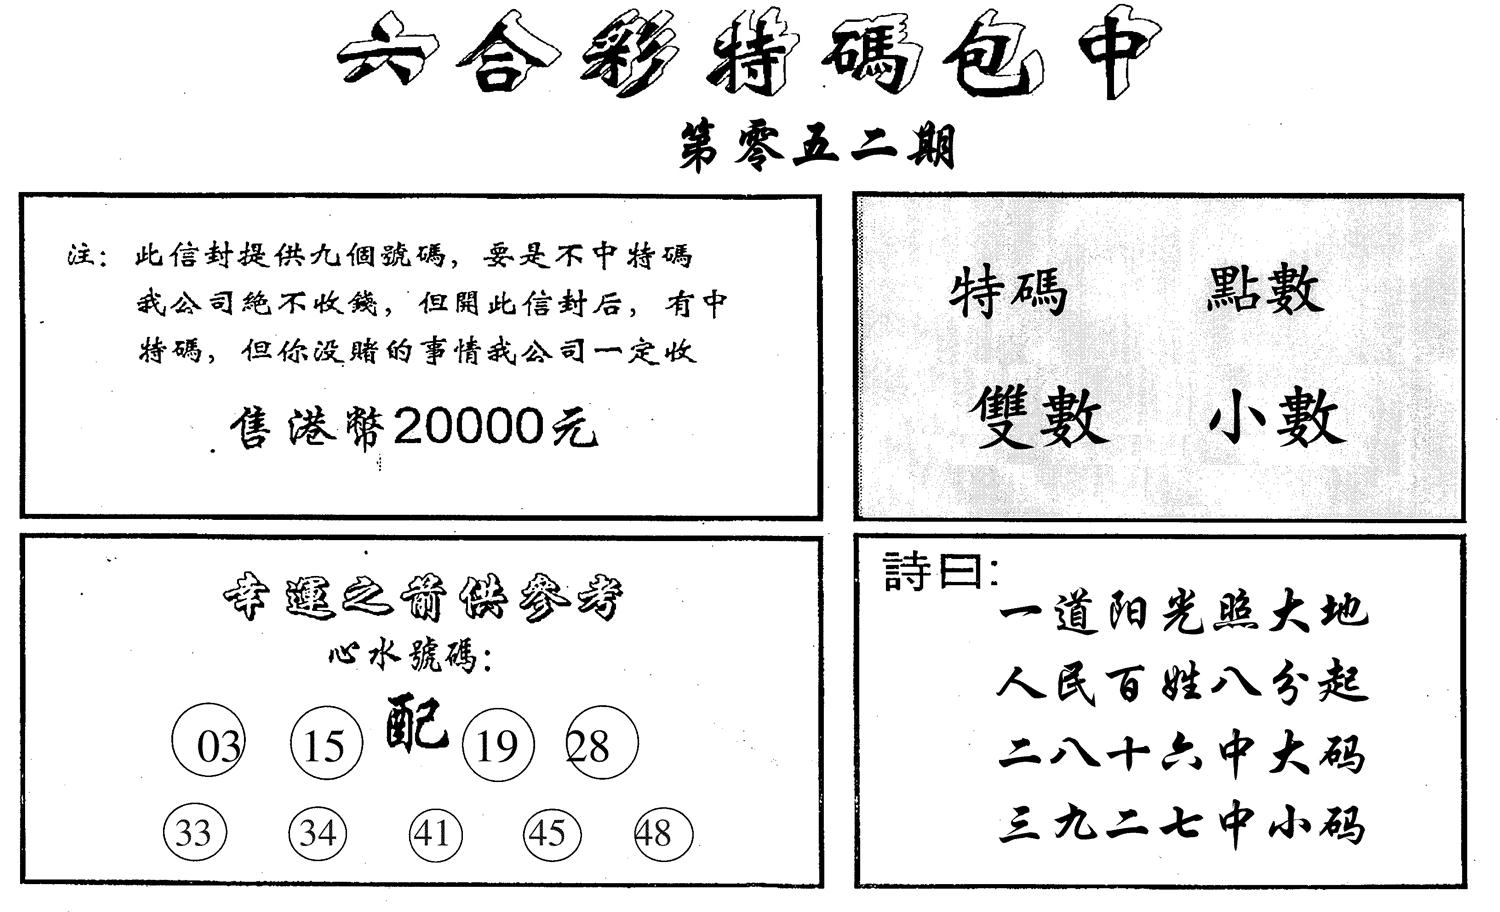 六合彩特碼包中
第零五二期
注：此信封提供九個號碼，要是不中特碼
我公司絕不收錢，但開此信封后，有中
特碼，但你没賭的事情我公司一定收
售港幣20000元
特碼 點數
雙數 小數
幸運之箭供參考
心水號碼：
03 15 配 19 28
33 34 41 45 48
詩曰：
一道阳光照大地
人民百姓八分起
二八十六中大码
三九二七中小码